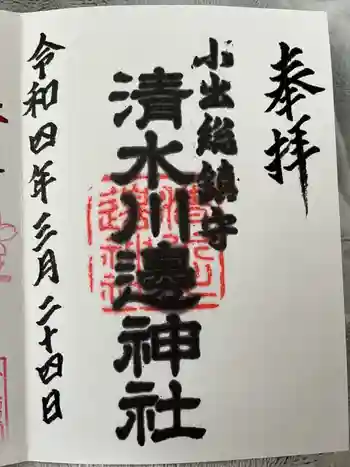 奉拝
小出総鎮守
清水川邊神社
令和四年三月二十四日